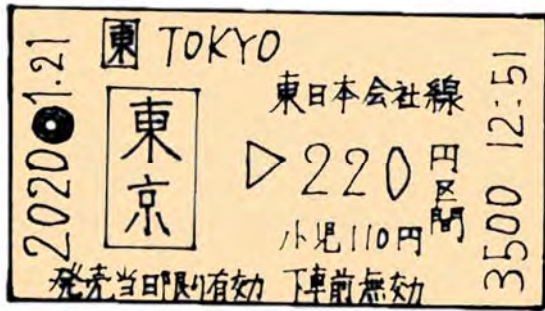 2020.1.21
東 TOKYO
東京
東日本会社線
▷220円区間
小児110円
発売当日限り有効 下車前無効
3500 12:51